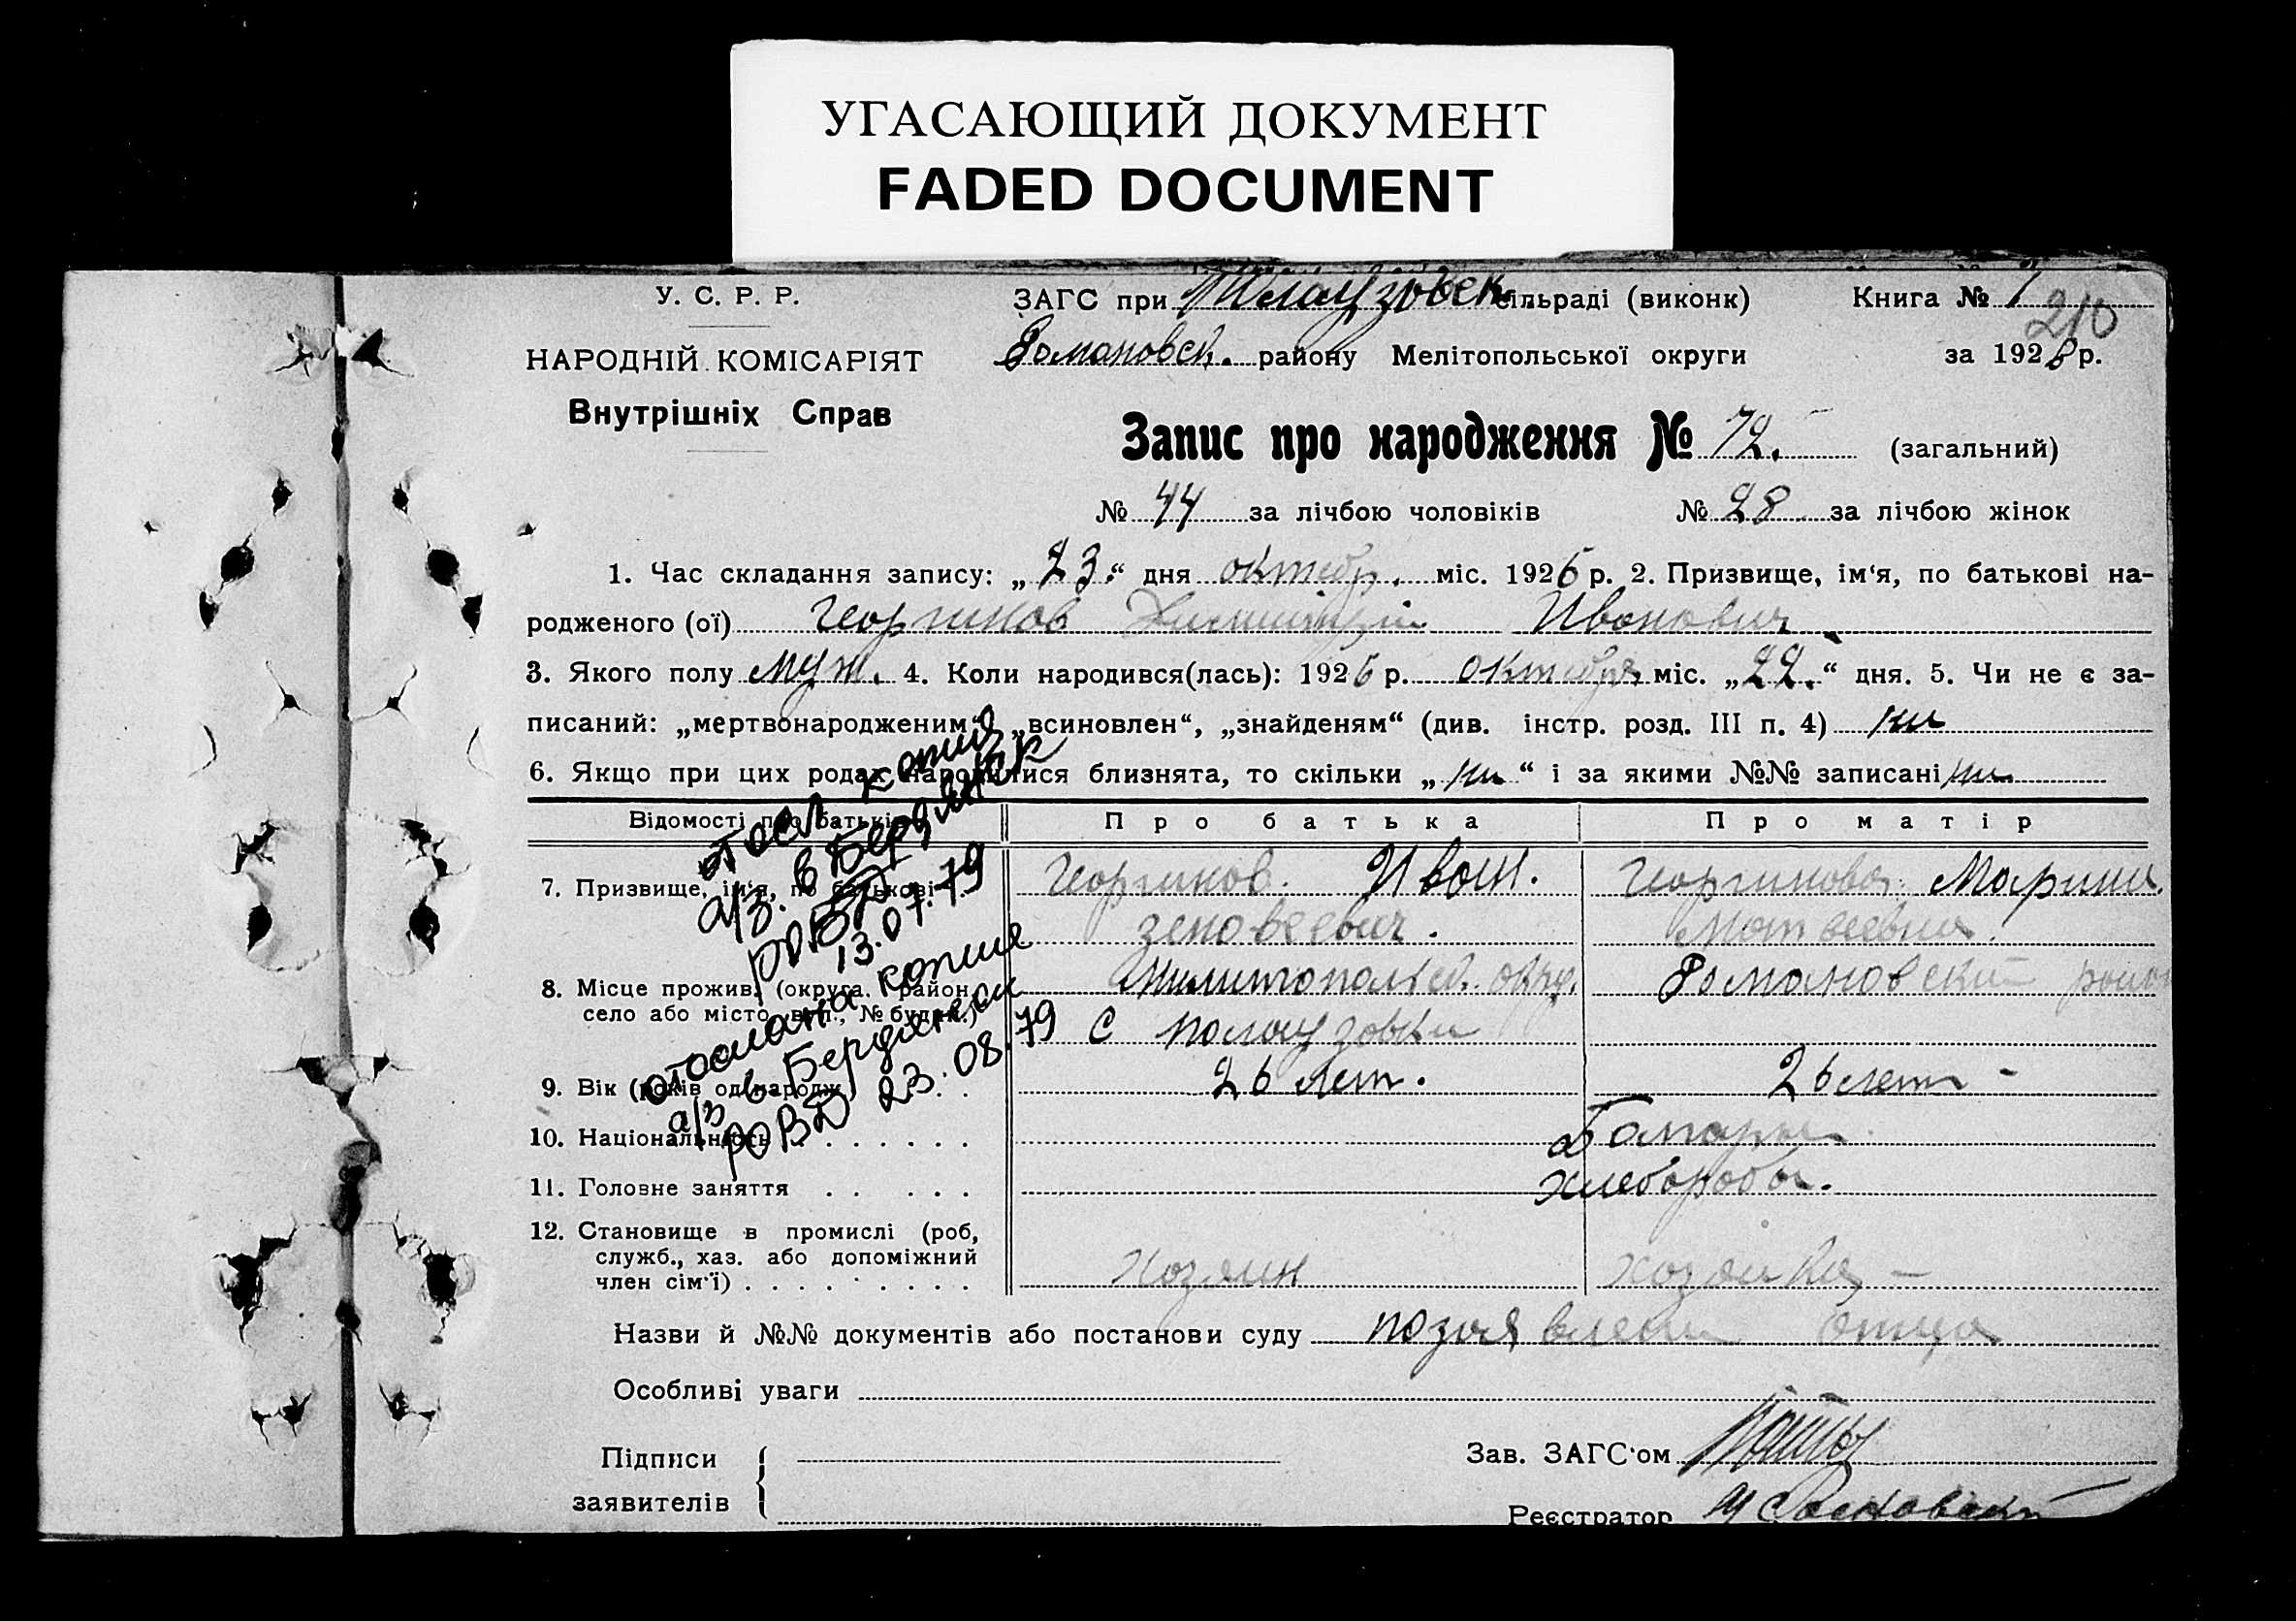 УГАСАЮЩИЙ ДОКУМЕНТ
FADED DOCUMENT
У. С. Р. Р.
НАРОДНІЙ КОМІСАРІЯТ
Внутрішніх Справ
ЗАГС при сільраді (виконк) Книга № 1
210
Романовск. району Мелітопольської округи за 1926 р.
Запис про народження № 72. (загальний)
№ 44 за лічбою чоловіків № 28 за лічбою жінок
1. Час складання запису: „23.“ дня октябр. міс. 1926 р. 2. Призвище, ім‘я, по батькові на-
родженого (ої) Георгинов Димитрий Иванович
3. Якого полу муж. 4. Коли народився(лась): 1926 р. октября міс. „22.“ дня. 5. Чи не є за-
писаний: „мертвонародженим“, „всиновлен“, „знайденям“ (див. інстр. розд. III п. 4) ни
6. Якщо при цих родах народилися близнята, то скільки „ни“ і за якими №№ записані ни
Відомості про батьків Про батька Про матір
7. Призвище, ім‘я, по батькові Георгинов Иван. Георгинова Марина
Зеновеевич. Матвеевна.
8. Місце прожив. (округа, район, Милитопольск. окру. Романовский район
село або місто, вул., № будин.) С Полоузовки
9. Вік (років од народж.) 26 лет. 26 лет -
10. Національність Болгары
11. Головне заняття хлеборобы.
12. Становище в промислі (роб,
служб., хаз. або допоміжний
член сім‘ї) Хозяин хозяйка -
отосл. копия
а/з. в Бердянск
РОВД
13.07.79
отослана копия
а/з в Бердянский
РОВД 23.08.79
Назви й №№ документів або постанови суду по заявлени отца
Особливі уваги
Підписи
заявителів
Зав. ЗАГС‘ом
Реєстратор